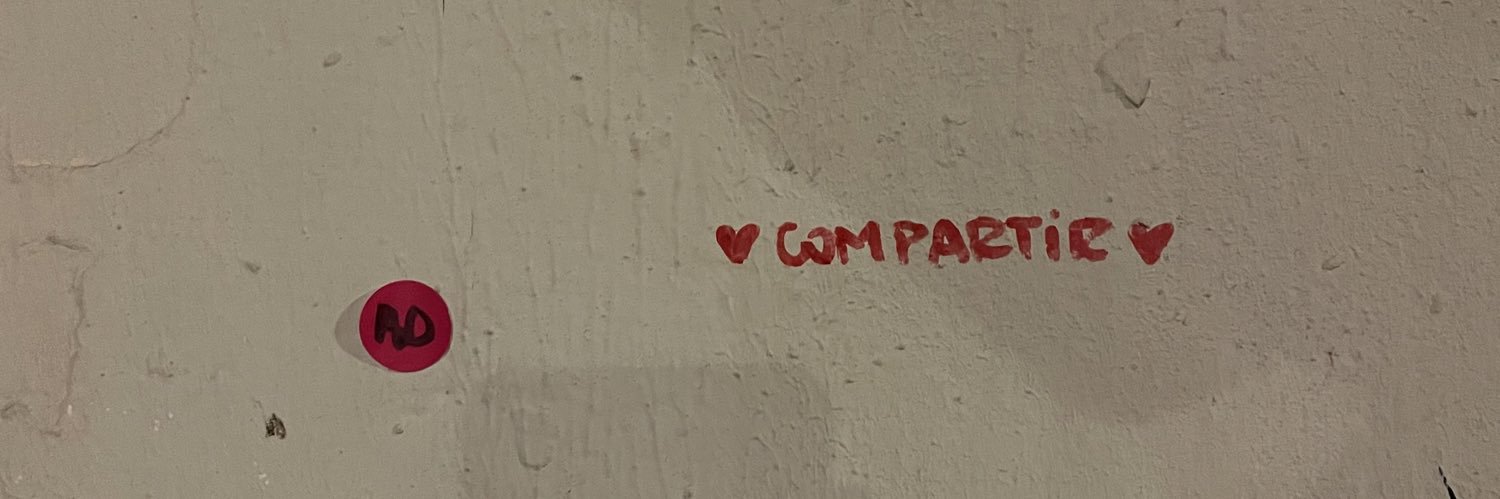 ♥ COMPARTiR ♥
AD